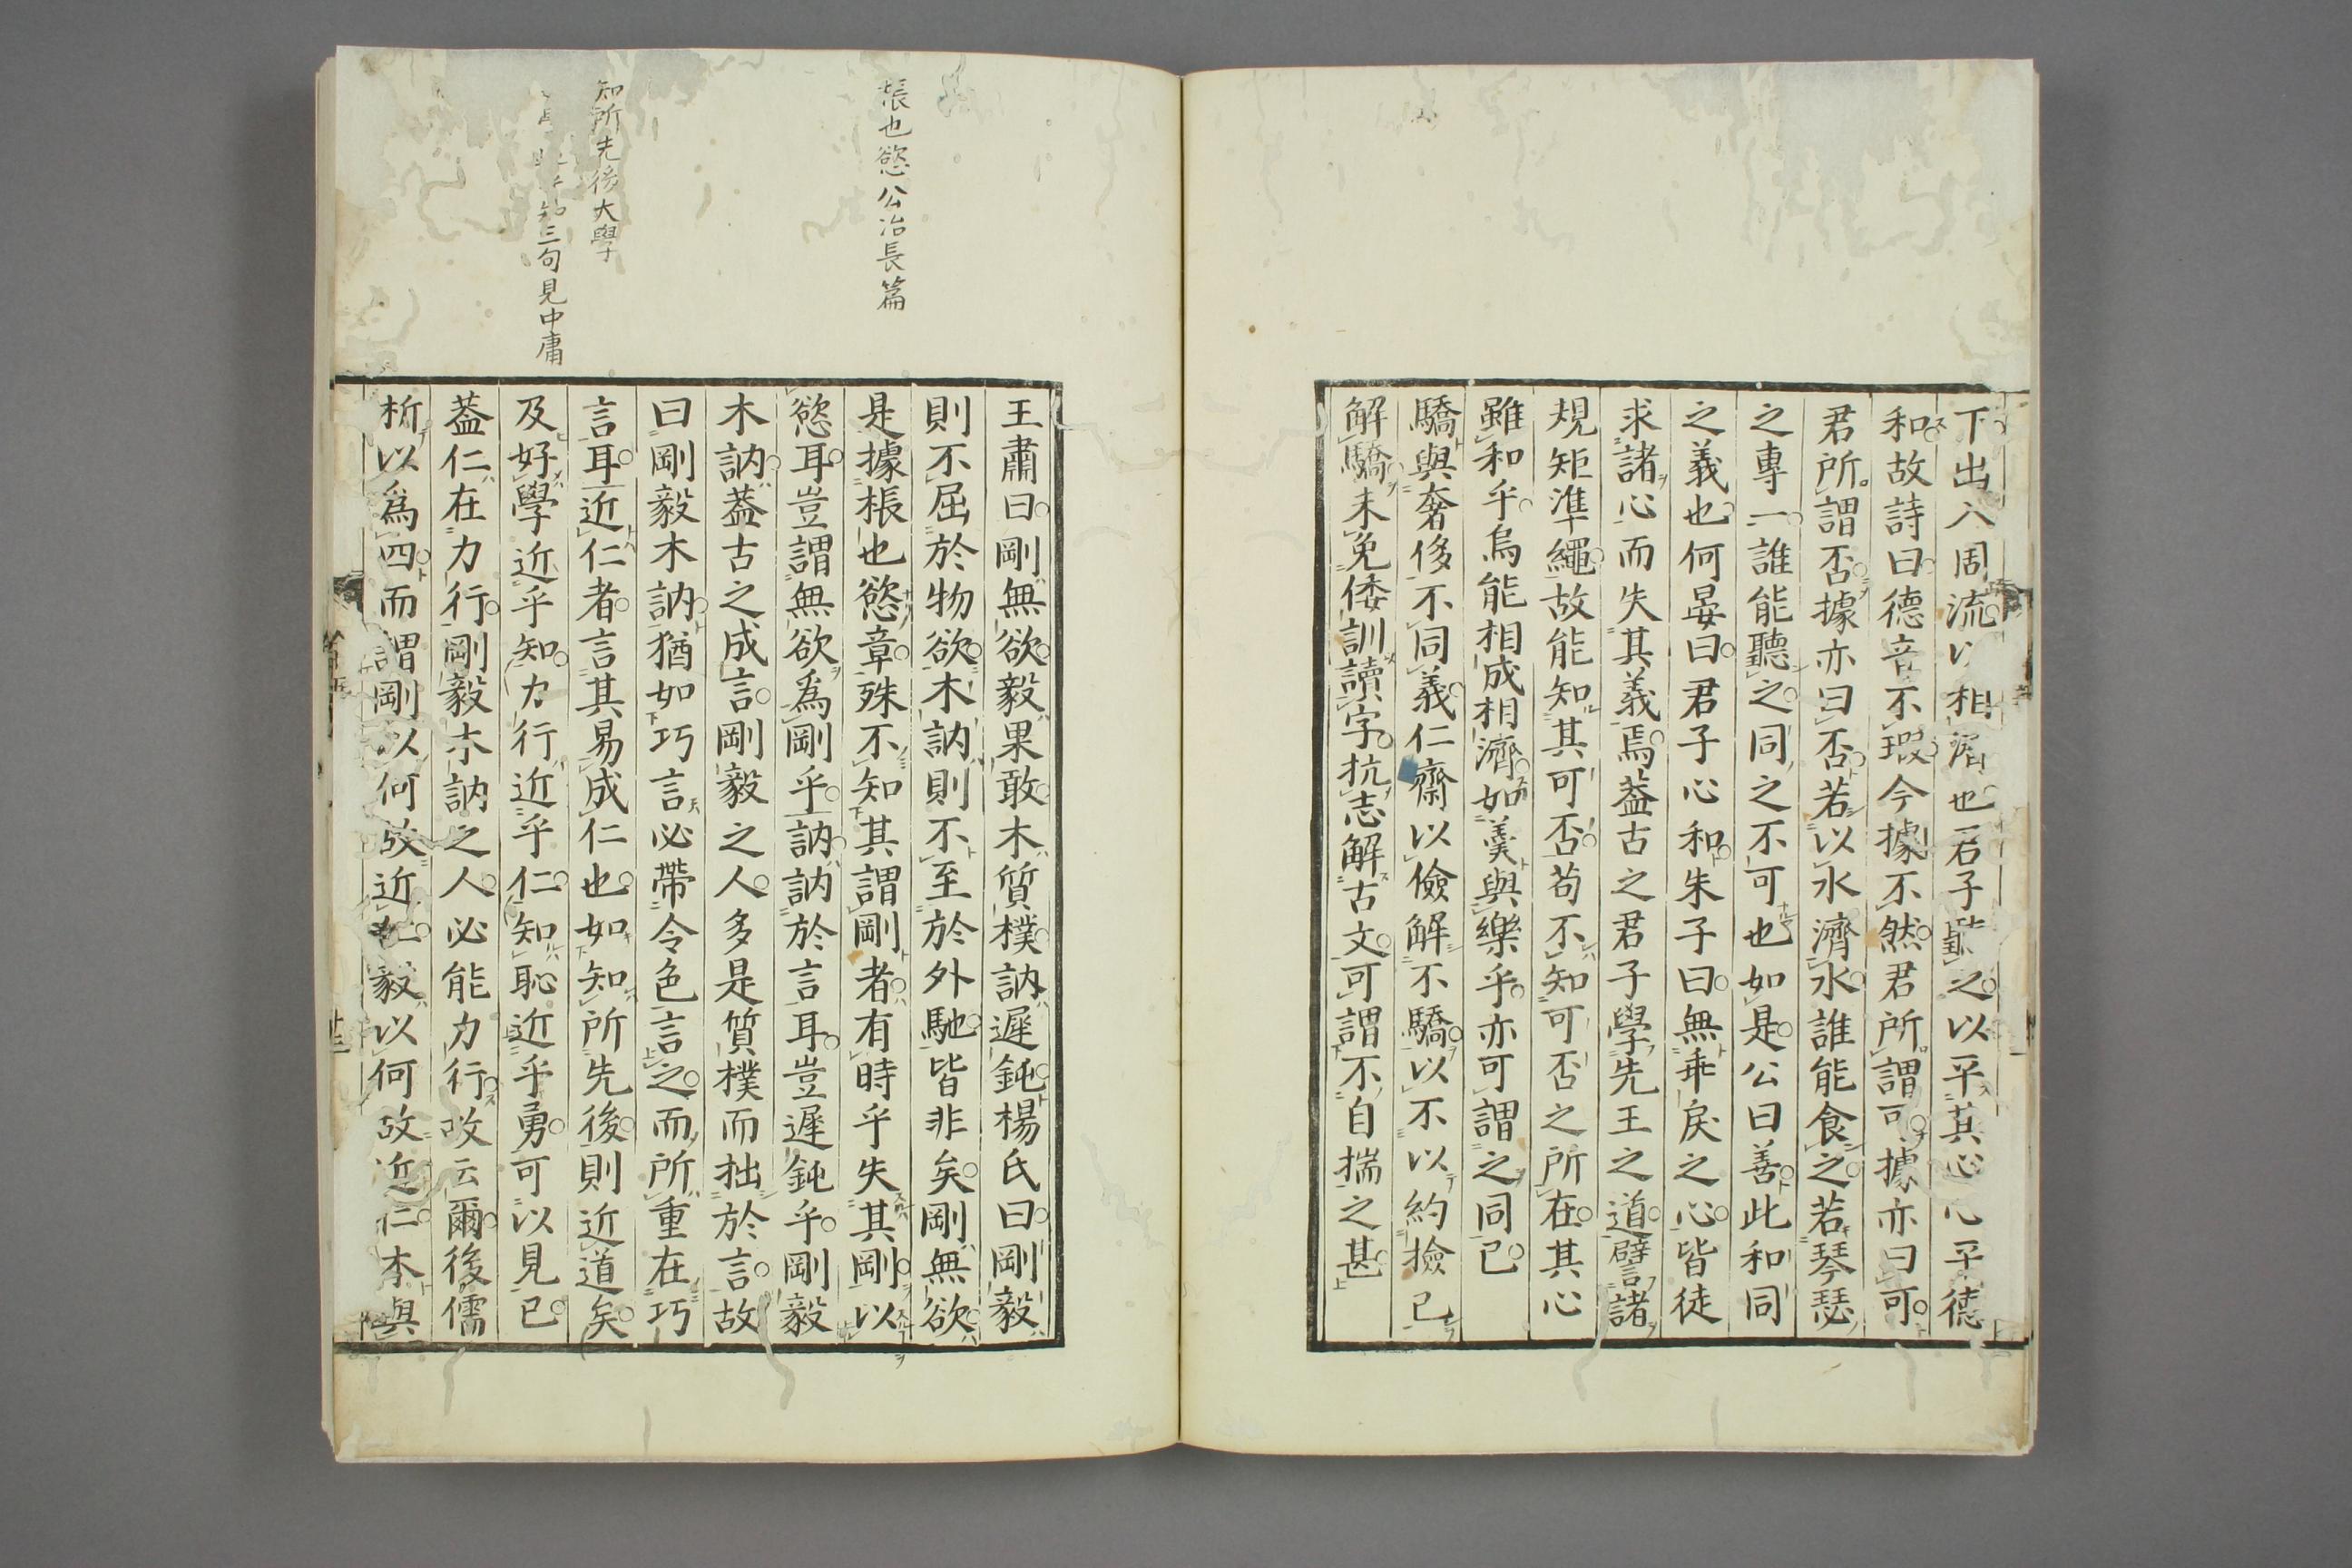 下出入周流以相濟也君子聽之以平其心心平德
和故詩曰德音不瑕今據不然君所謂可據亦曰可
君所謂否據亦曰否若以水濟水誰能食之若琴瑟
之專一誰能聽之同之不可也如是公曰善此和同
之義也何晏曰君子心和朱子曰無乖戾之心皆徒
求諸心而失其義焉蓋古之君子學先王之道譬諸
規矩準繩故能知其可否苟不知可否之所在其心
雖和乎烏能相成相濟如羹與樂乎亦可謂之同已
驕與奢侈不同義仁齋以儉解不驕以不以約撿己
解驕未免倭訓讀字抗志解古文可謂不自揣之甚
棖也慾公冶長篇
知所先後大學
三句見中庸
王肅曰剛無欲毅果敢木質樸訥遲鈍楊氏曰剛毅
則不屈於物欲木訥則不至於外馳皆非矣剛無欲
是據棖也慾章殊不知其謂剛者有時乎失其剛以
慾耳豈謂無欲爲剛乎訥訥於言耳豈遲鈍乎剛毅
木訥蓋古之成言剛毅之人多是質樸而拙於言故
曰剛毅木訥猶如巧言必帶令色言之而所重在巧
言耳近仁者言其易成仁也如知所先後則近道矣
及好學近乎知力行近乎仁知恥近乎勇可以見已
蓋仁在力行剛毅木訥之人必能力行故云爾後儒
析以爲四而謂剛以何故近仁毅以何故近仁木與